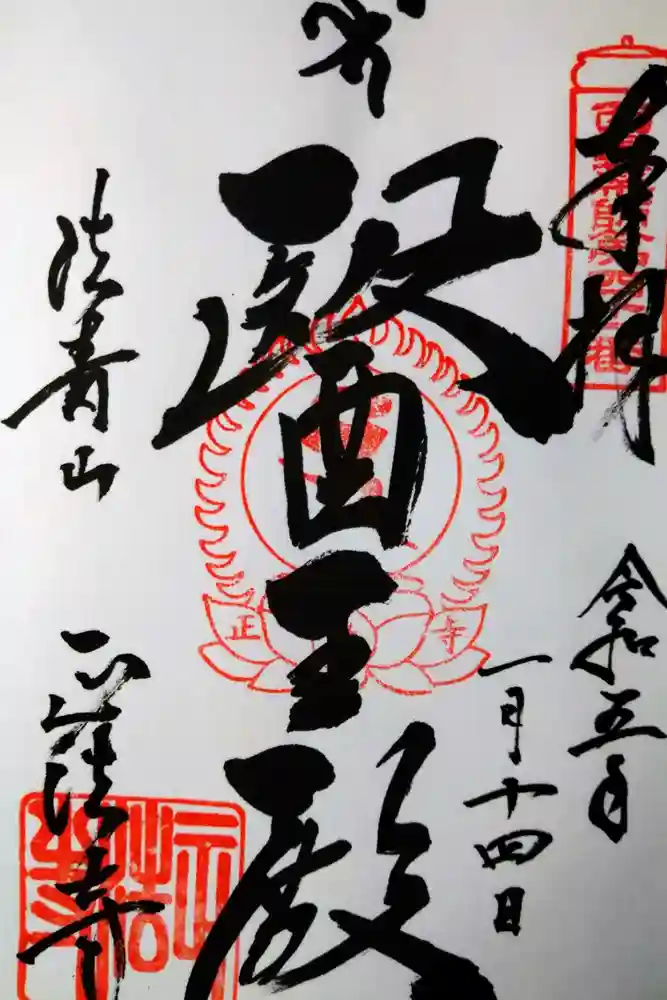 奉拝
令和五年
一月十四日
醫王殿
法青山
正法寺
正
寺
正法寺